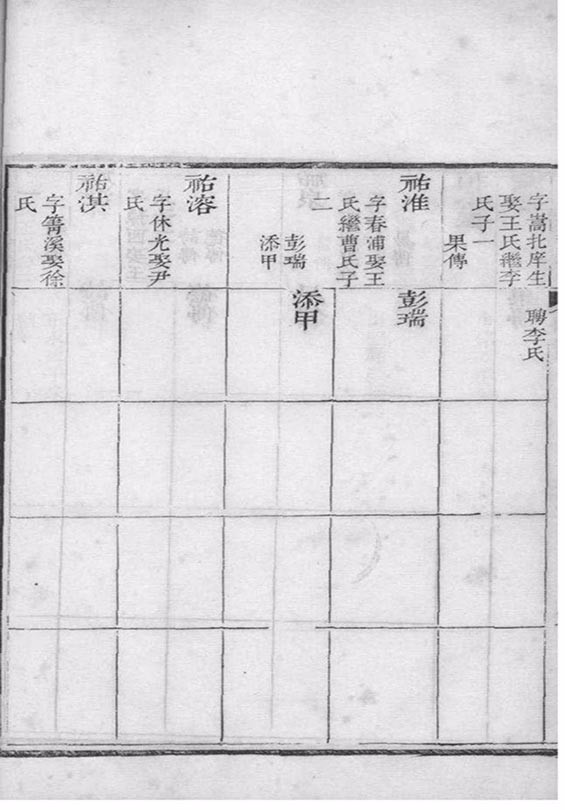 字嵩北庠生
娶王氏繼李
氏子一
果傳
祐淮
字春浦娶王
氏繼曹氏子
二
彭瑞
添甲
祐溶
字休光娶尹
氏
祐淇
字箐溪娶徐
氏
聘李氏
彭瑞
添甲